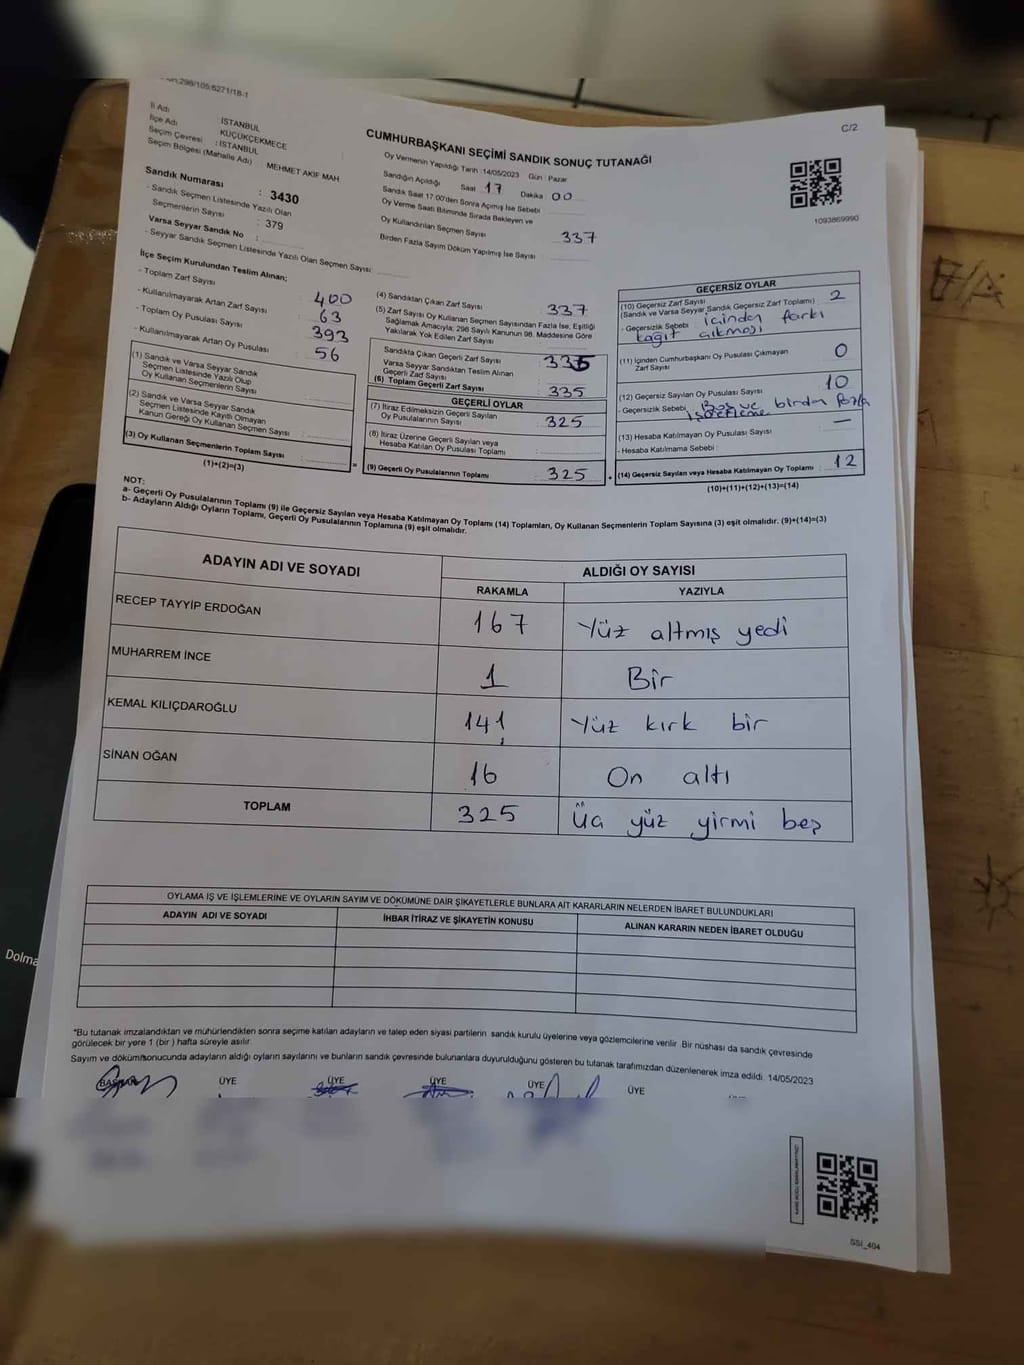 298/105/6271/18-1
C/2
İl Adı : İSTANBUL
İlçe Adı : KÜÇÜKÇEKMECE
Seçim Çevresi : İSTANBUL
Seçim Bölgesi (Mahalle Adı) MEHMET AKİF MAH
Sandık Numarası : 3430
- Sandık Seçmen Listesinde Yazılı Olan
Seçmenlerin Sayısı : 379
Varsa Seyyar Sandık No :
- Seyyar Sandık Seçmen Listesinde Yazılı Olan Seçmen Sayısı:
CUMHURBAŞKANI SEÇİMİ SANDIK SONUÇ TUTANAĞI
Oy Vermenin Yapıldığı Tarih :14/05/2023 Gün : Pazar
Sandığın Açıldığı Saat 17 Dakika 00
Sandık Saat 17:00'den Sonra Açılmış İse Sebebi
Oy Verme Saati Bitiminde Sırada Bekleyen ve
Oy Kullandırılan Seçmen Sayısı 337
Birden Fazla Sayım Döküm Yapılmış İse Sayısı
1093869990
İlçe Seçim Kurulundan Teslim Alınan;
- Toplam Zarf Sayısı : 400
- Kullanılmayarak Artan Zarf Sayısı : 63
- Toplam Oy Pusulası Sayısı : 393
- Kullanılmayarak Artan Oy Pusulası : 56
(1) Sandık ve Varsa Seyyar Sandık
Seçmen Listesinde Yazılı Olup
Oy Kullanan Seçmenlerin Sayısı :
(2) Sandık ve Varsa Seyyar Sandık
Seçmen Listesinde Kayıtlı Olmayan
Kanun Gereği Oy Kullanan Seçmen Sayısı :
(3) Oy Kullanan Seçmenlerin Toplam Sayısı :
(1)+(2)=(3)
(4) Sandıktan Çıkan Zarf Sayısı : 337
(5) Zarf Sayısı Oy Kullanan Seçmen Sayısından Fazla İse, Eşitliği
Sağlamak Amacıyla; 298 Sayılı Kanunun 98. Maddesine Göre
Yakılarak Yok Edilen Zarf Sayısı
Sandıkta Çıkan Geçerli Zarf Sayısı : 335
Varsa Seyyar Sandıktan Teslim Alınan
Geçerli Zarf Sayısı :
(6) Toplam Geçerli Zarf Sayısı : 335
GEÇERLİ OYLAR
(7) İtiraz Edilmeksizin Geçerli Sayılan
Oy Pusulalarının Sayısı : 325
(8) İtiraz Üzerine Geçerli Sayılan veya
Hesaba Katılan Oy Pusulası Toplamı :
(9) Geçerli Oy Pusulalarının Toplamı : 325
GEÇERSİZ OYLAR
(10) Geçersiz Zarf Sayısı
(Sandık ve Varsa Seyyar Sandık Geçersiz Zarf Toplamı) : 2
- Geçersizlik Sebebi : içinden farklı
kağıt çıkması
(11) İçinden Cumhurbaşkanı Oy Pusulası Çıkmayan
Zarf Sayısı : 0
(12) Geçersiz Sayılan Oy Pusulası Sayısı : 10
- Geçersizlik Sebebi : Boş ve birden fazla
işaretleme
(13) Hesaba Katılmayan Oy Pusulası Sayısı : —
- Hesaba Katılmama Sebebi :
(14) Geçersiz Sayılan veya Hesaba Katılmayan Oy Toplamı : 12
(10)+(11)+(12)+(13)=(14)
NOT:
a- Geçerli Oy Pusulalarının Toplamı (9) ile Geçersiz Sayılan veya Hesaba Katılmayan Oy Toplamı (14) Toplamları, Oy Kullanan Seçmenlerin Toplam Sayısına (3) eşit olmalıdır. (9)+(14)=(3)
b- Adayların Aldığı Oyların Toplamı, Geçerli Oy Pusulalarının Toplamına (9) eşit olmalıdır.
ADAYIN ADI VE SOYADI ALDIĞI OY SAYISI
RAKAMLA YAZIYLA
RECEP TAYYİP ERDOĞAN 167 Yüz altmış yedi
MUHARREM İNCE 1 Bir
KEMAL KILIÇDAROĞLU 141 Yüz kırk bir
SİNAN OĞAN 16 On altı
TOPLAM 325 Üç yüz yirmi beş
OYLAMA İŞ VE İŞLEMLERİNE VE OYLARIN SAYIM VE DÖKÜMÜNE DAİR ŞİKAYETLERLE BUNLARA AİT KARARLARIN NELERDEN İBARET BULUNDUKLARI
ADAYIN ADI VE SOYADI İHBAR İTİRAZ VE ŞİKAYETİN KONUSU ALINAN KARARIN NEDEN İBARET OLDUĞU
*Bu tutanak imzalandıktan ve mühürlendikten sonra seçime katılan adayların ve talep eden siyasi partilerin sandık kurulu üyelerine veya gözlemcilerine verilir. Bir nüshası da sandık çevresinde
görülecek bir yere 1 (bir ) hafta süreyle asılır.
Sayım ve döküm sonucunda adayların aldığı oyların sayılarını ve bunların sandık çevresinde bulunanlara duyurulduğunu gösteren bu tutanak tarafımızdan düzenlenerek imza edildi. 14/05/2023
BAŞKAN ÜYE ÜYE ÜYE ÜYE ÜYE
SSI_404
Dolma